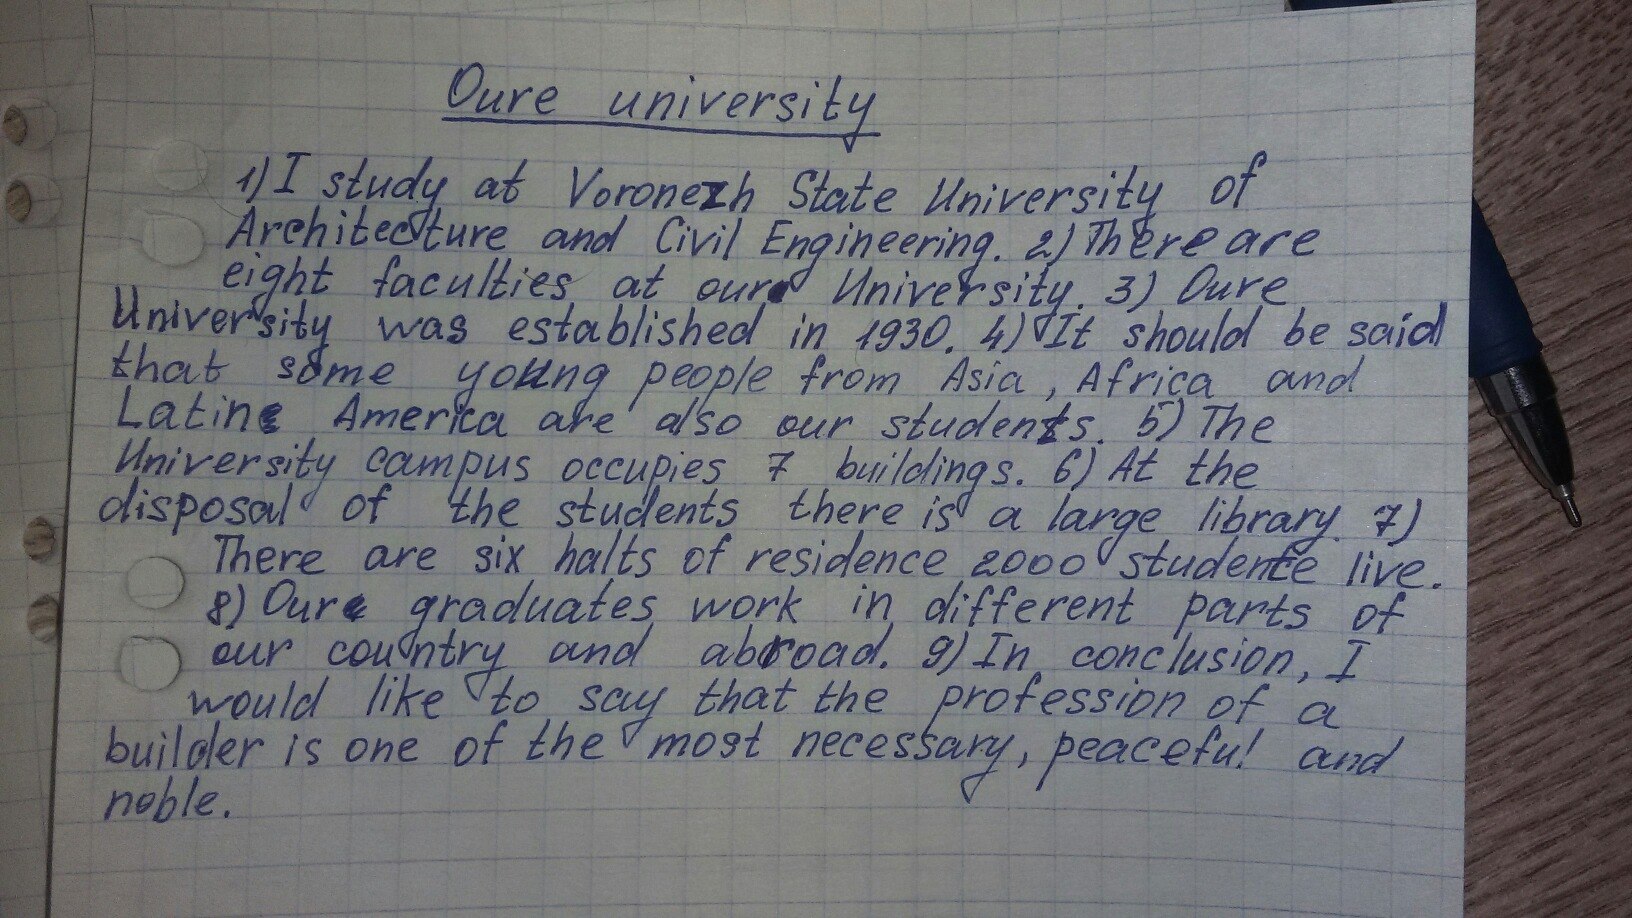 Oure university
1) I study at Voronezh State University of
Architecture and Civil Engineering. 2) There are
eight faculties at our University. 3) Oure
University was established in 1930. 4) It should be said
that some young people from Asia, Africa and
Latin America are also our students. 5) The
University campus occupies 7 buildings. 6) At the
disposal of the students there is a large library. 7)
There are six halts of residence 2000 studente live.
8) Oure graduates work in different parts of
our country and abroad. 9) In conclusion, I
would like to say that the profession of a
builder is one of the most necessary, peaceful and
noble.